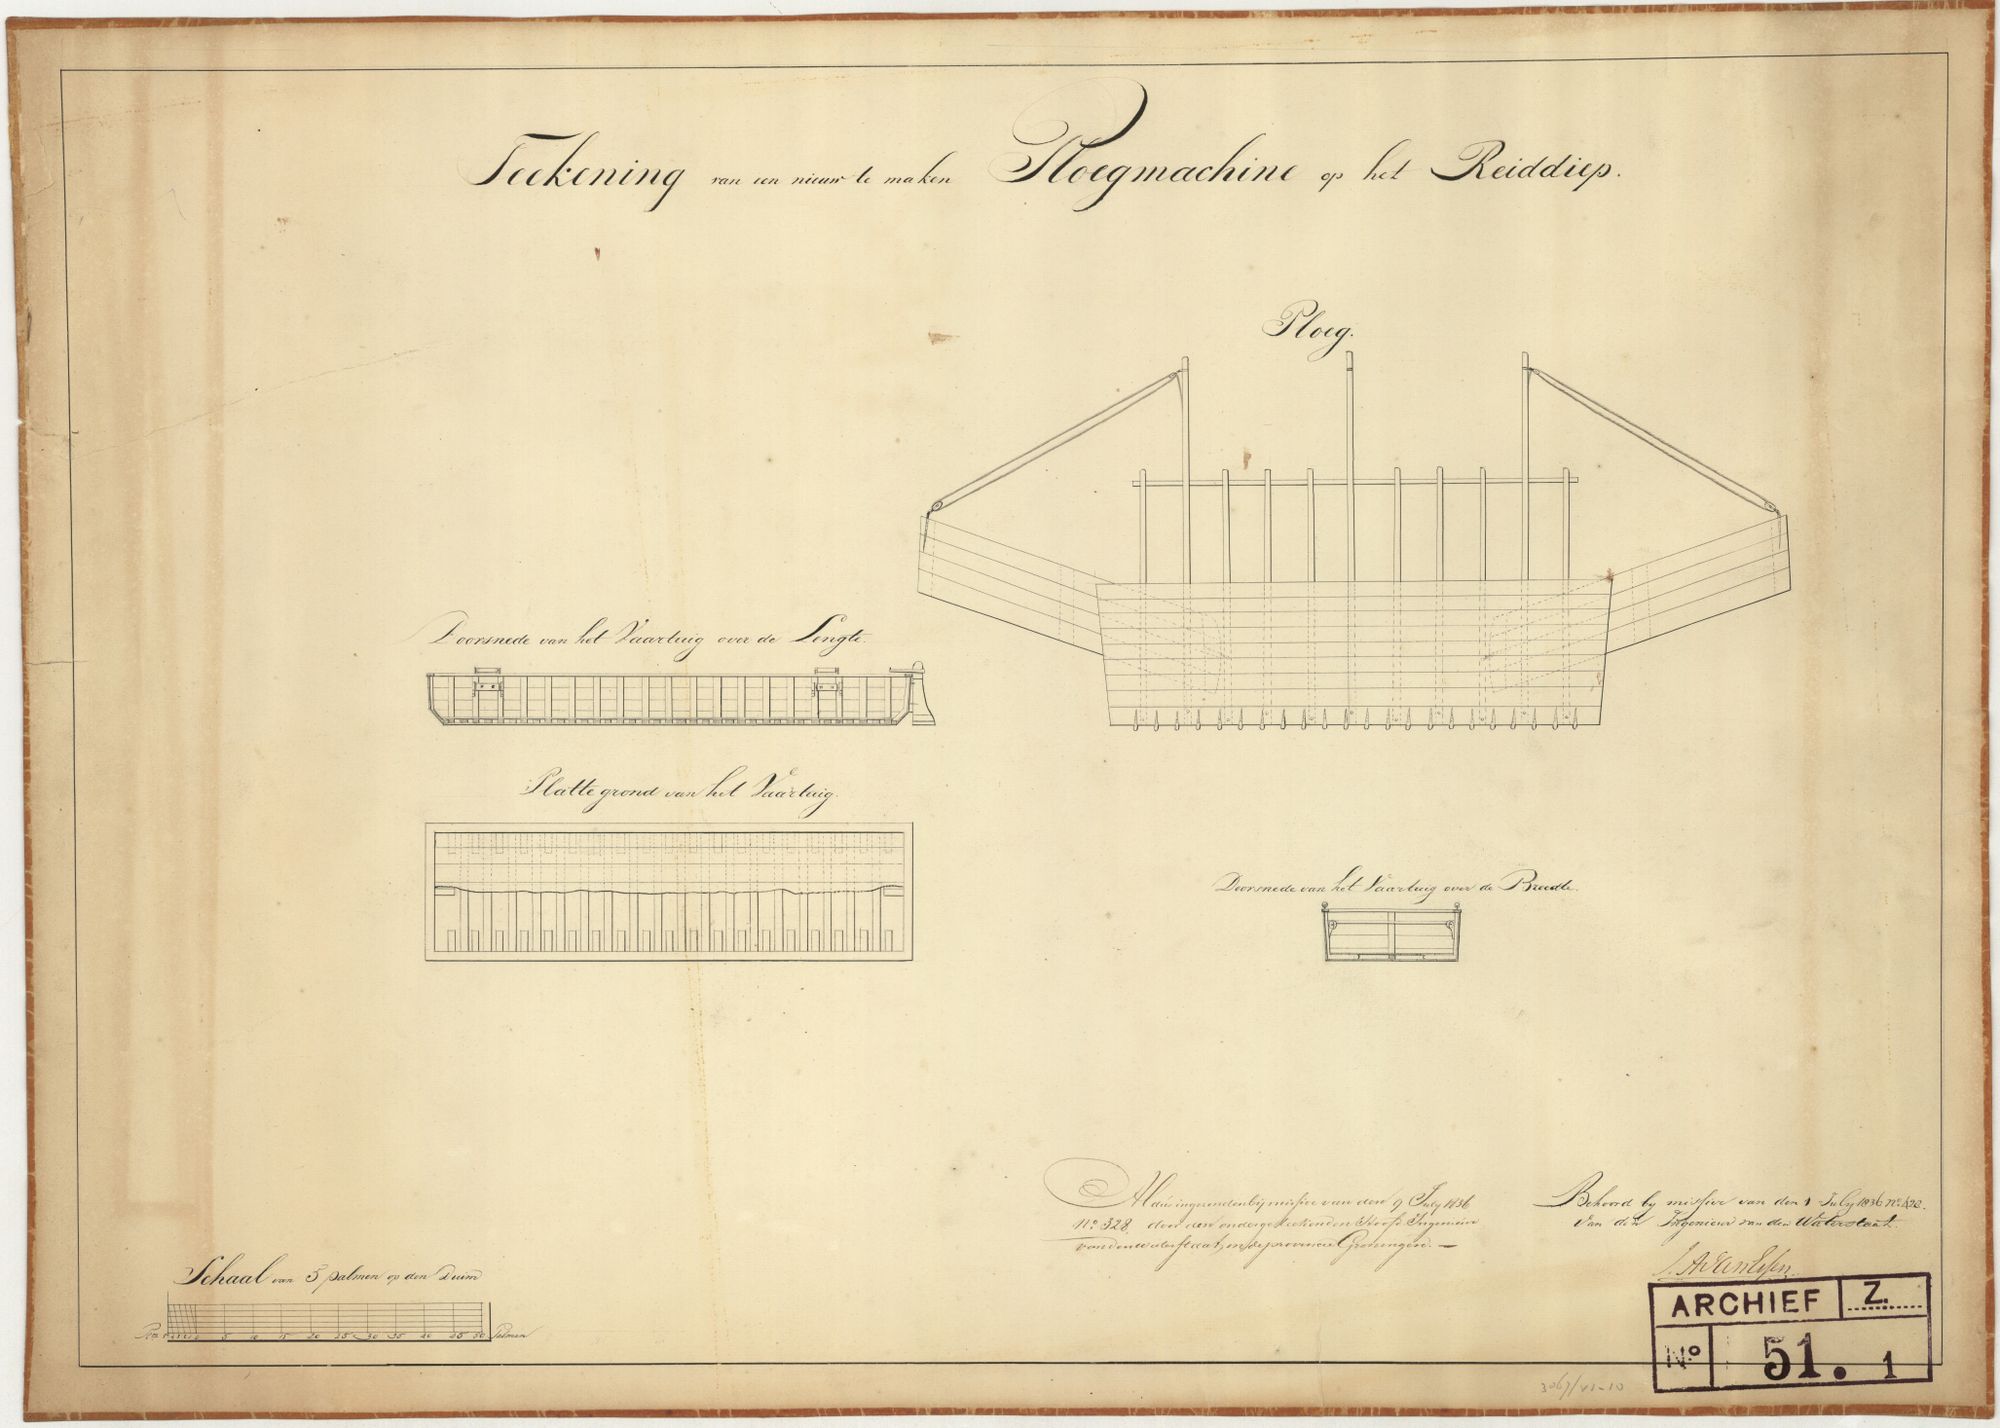 Teekening van een nieuw te maken Ploegmachine op het Reiddiep.
Ploeg.
Doorsnede van het Vaartuig over de Lengte.
Platte grond van het Vaartuig.
Doorsnede van het Vaartuig over de Breedte.
Aldus ingezonden bij missive van den 9 July 1836
No 328 door den ondergeteekenden Hoofd Ingenieur
van den Waterstaat, in de provincie Groningen. —
Behoord by missive van den 1 July 1836 No
van den Ingenieur van den Waterstaat.
Schaal van 5 palmen op den Duim
0 5 10 15 20 25 30 35 40 45 50 Palmen
ARCHIEF Z.
No 51. 1